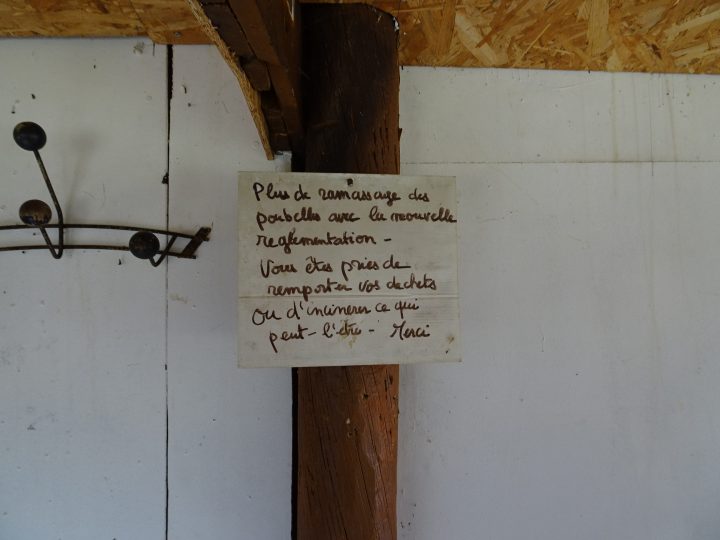 Plus de ramassage des
poubelles avec la nouvelle
reglementation -
Vous êtes pries de
remporter vos dechets
ou d'incinerer ce qui
peut- l'être - Merci